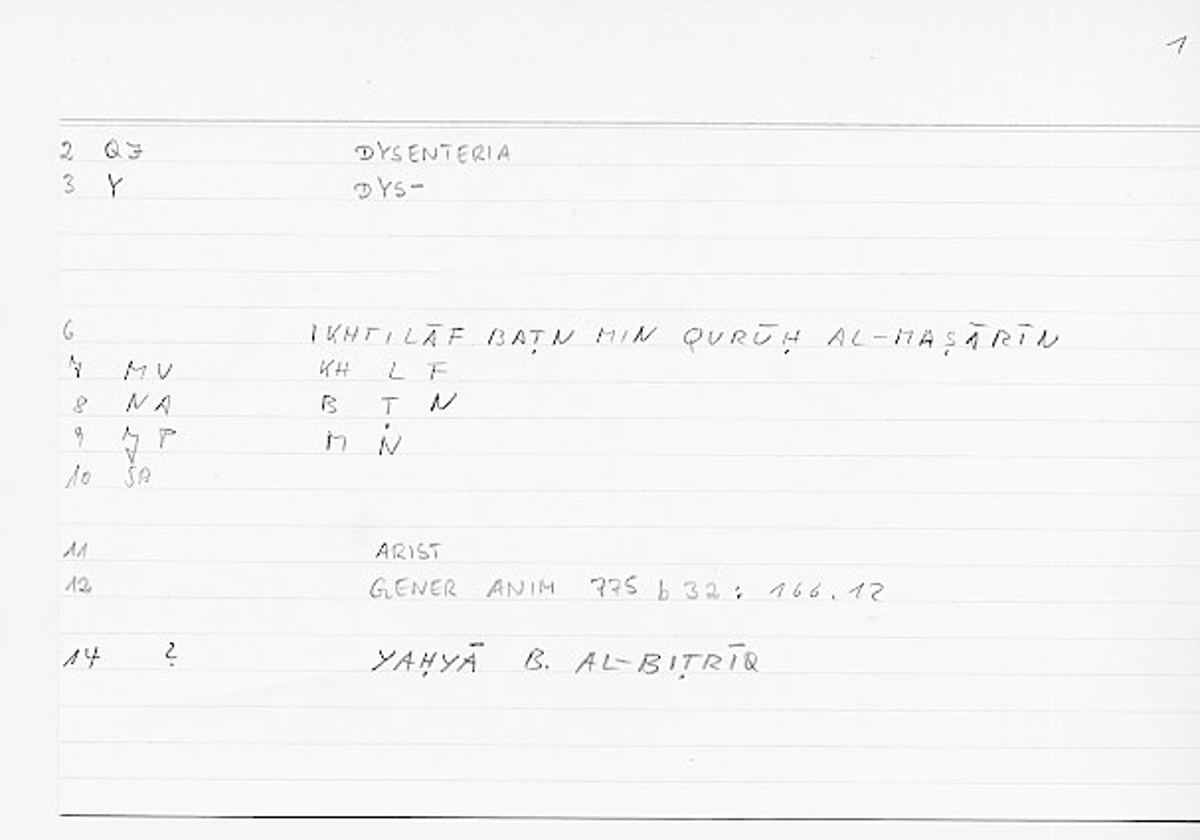 1
2 QJ DYSENTERIA
3 Y DYS-
6 IKHTILĀF BAṬN MIN QURŪḤ AL-MAṢĀRĪN
7 MV KH L F
8 NA B Ṭ N
9 JP M N
10 ŠA
11 ARIST
12 GENER ANIM 775 b 32 : 166.12
14 ? YAḤYĀ B. AL-BIṬRĪQ